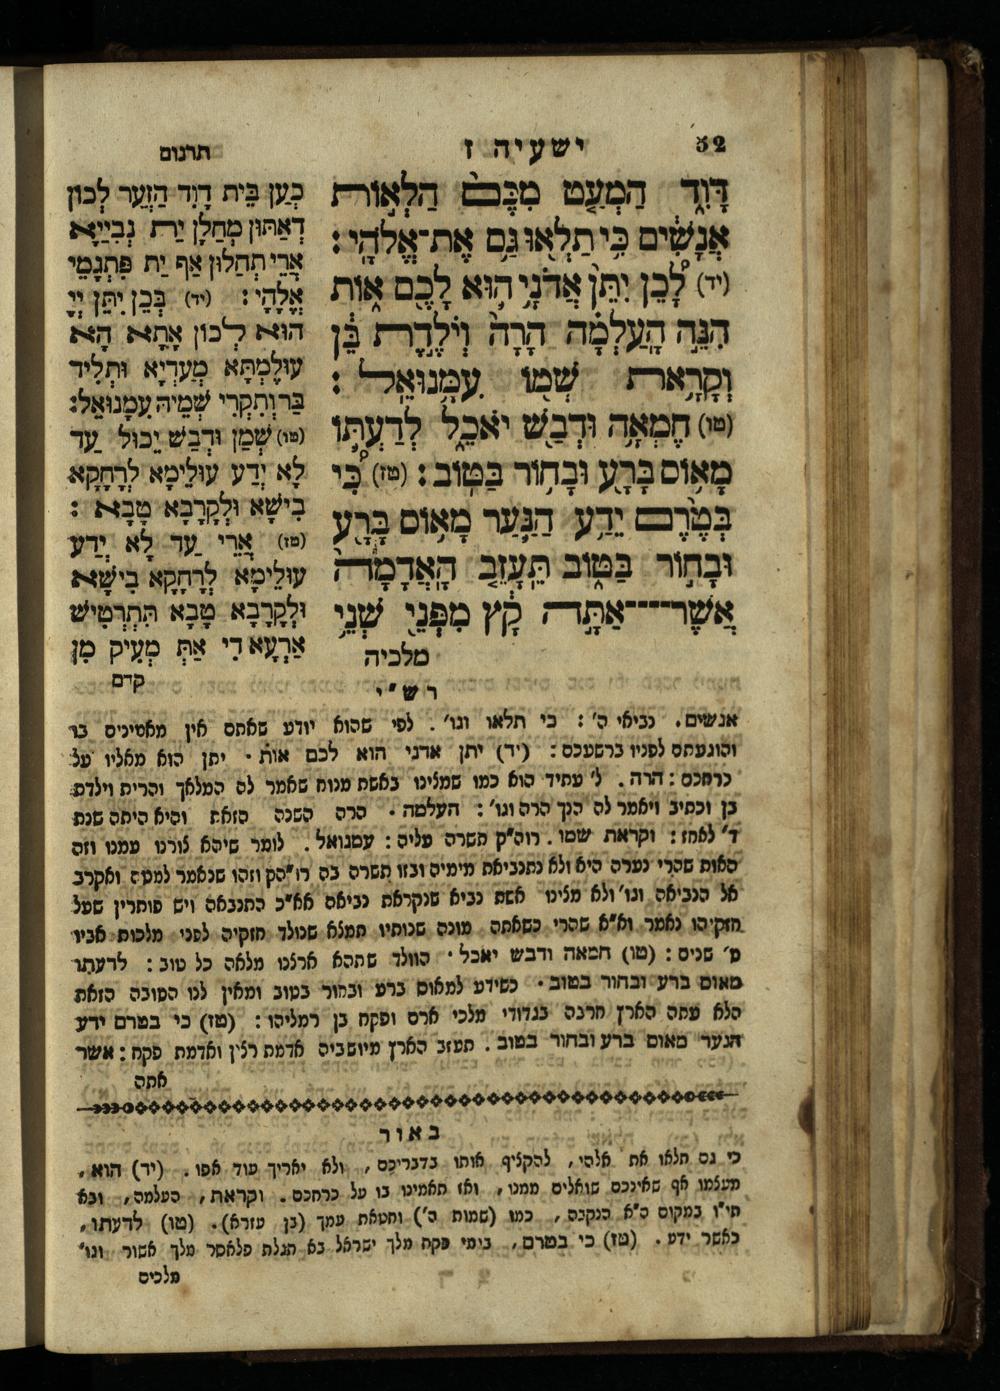 52
ישעיה ז
תרגום
דָּוִ֑ד הַמְעַ֤ט מִכֶּם֙ הַלְא֣וֹת
אֲנָשִׁ֔ים כִּ֥י תַלְא֖וּ גַּ֥ם אֶת־אֱלֹהָֽי :
(יד) לָ֠כֵן יִתֵּ֨ן אֲדֹנָ֥י ה֛וּא לָכֶ֖ם א֑וֹת
הִנֵּ֣ה הָֽעַלְמָ֗ה הָרָה֙ וְיֹלֶ֣דֶת בֵּ֔ן
וְקָרָ֥את שְׁמ֖וֹ עִמָּֽנוּאֵֽל :
(טו) חֶמְאָ֥ה וּדְבַ֖שׁ יֹאכֵ֑ל לְדַעְתּ֛וֹ
מָא֥וֹס בָּרָ֖ע וּבָח֥וֹר בַּטּֽוֹב : (טז) כִּ֠י
בְּטֶ֨רֶם יֵדַ֥ע הַנַּ֛עַר מָאֹ֥ס בָּרָ֖ע
וּבָחֹ֣ר בַּטּ֑וֹב תֵּעָזֵ֤ב הָאֲדָמָה֙
אֲשֶׁר אַתָּ֣ה קָ֔ץ מִפְּנֵ֖י שְׁנֵ֥י
מלכיה
כְּעַן בֵּית דָוִד הַזְעֵר לְכוֹן
דְאַתּוּן מְהַלָן יַת נְבִיַיָא
אֲרֵי תְהַלוּן אַף יַת פִּתְגָמֵי
אֱלָהָי : (יד) בְּכֵן יִתֵּן יְיָ
הוּא לְכוֹן אָתָא הָא
עוּלֶמְתָּא מְעַדְיָא וּתְלִיד
בַּר וְתִקְרֵי שְׁמֵיהּ עִמָנוּאֵל :
(טו) שְׁמַן וּדְבַשׁ יֵכוּל עַד
לָא יְדַע עוּלֵימָא לְרַחָקָא
בִישָׁא וּלְקָרָבָא טָבָא :
(טז) אֲרֵי עַד לָא יְדַע
עוּלֵימָא לְרַחָקָא בִישָׁא
וּלְקָרָבָא טָבָא תִּתְרְטִישׁ
אַרְעָא דִי אַתְּ מֵעִיק מִן
קדם
רש"י
אנשים. נביאי ה' : כי תלאו וגו'. לפי שהוא יודע שאתם אין מאמינים בו
והוגעתם לפניו ברשעכם : (יד) יתן אדני הוא לכם אות. יתן הוא מאליו על
כרחכם : הרה. ל' עתיד הוא כמו שמצינו באשת מנוח שאמר לה המלאך והרית וילדת
בן וכתיב ויאמר לה הנך הרה וגו' : העלמה. הרה השנה הזאת והיא היתה שנת
ד' לאחז : וקראת שמו. רוה"ק תשרה עליה : עמנואל. לומר שיהא צורנו עמנו וזה
האות שהרי נערה היא ולא נתנביאת מימיה ובזו תשרה בה רו"הק וזהו שנאמר למטה ואקרב
אל הנביאה וגו' ולא מצינו אשת נביא שנקראת נביאה אא"כ התנבאה ויש פותרין שעל
חזקיהו נאמר וא"א שהרי כשאתה מונה שנותיו תמצא שנולד חזקיה לפני מלכות אביו
ט' שנים : (טו) חמאה ודבש יאכל. הוולד שתהא ארצנו מלאה כל טוב : לדעתו
מאום ברע ובחור בטוב. כשידע למאוס ברע ובחור בטוב ומאין לנו הטובה הזאת
הלא עתה הארץ חרבה בגדודי מלכי ארם ופקח בן רמליהו : (טז) כי בטרם ידע
הנער מאום ברע ובחור בטוב. תעזב הארץ מיושביה אדמת רצין ואדמת פקח : אשר
אתה
באור
כי גם תלאו את אלהי, להקציף אותו בדבריכם, ולא יאריך עוד אפו. (יד) הוא,
מעצמו אף שאינכם שואלים ממנו, ואז תאמינו בו על כרחכם. וקראת, העלמה, ובא
תי"ו במקום ה"א הנקבה, כמו (שמות ה') וחטאת עמך (בן עזרא). (טו) לדעתו,
כאשר ידע. (טז) כי בטרם, בימי פקח מלך ישראל בא תגלת פלאסר מלך אשור וגו'
מלכים